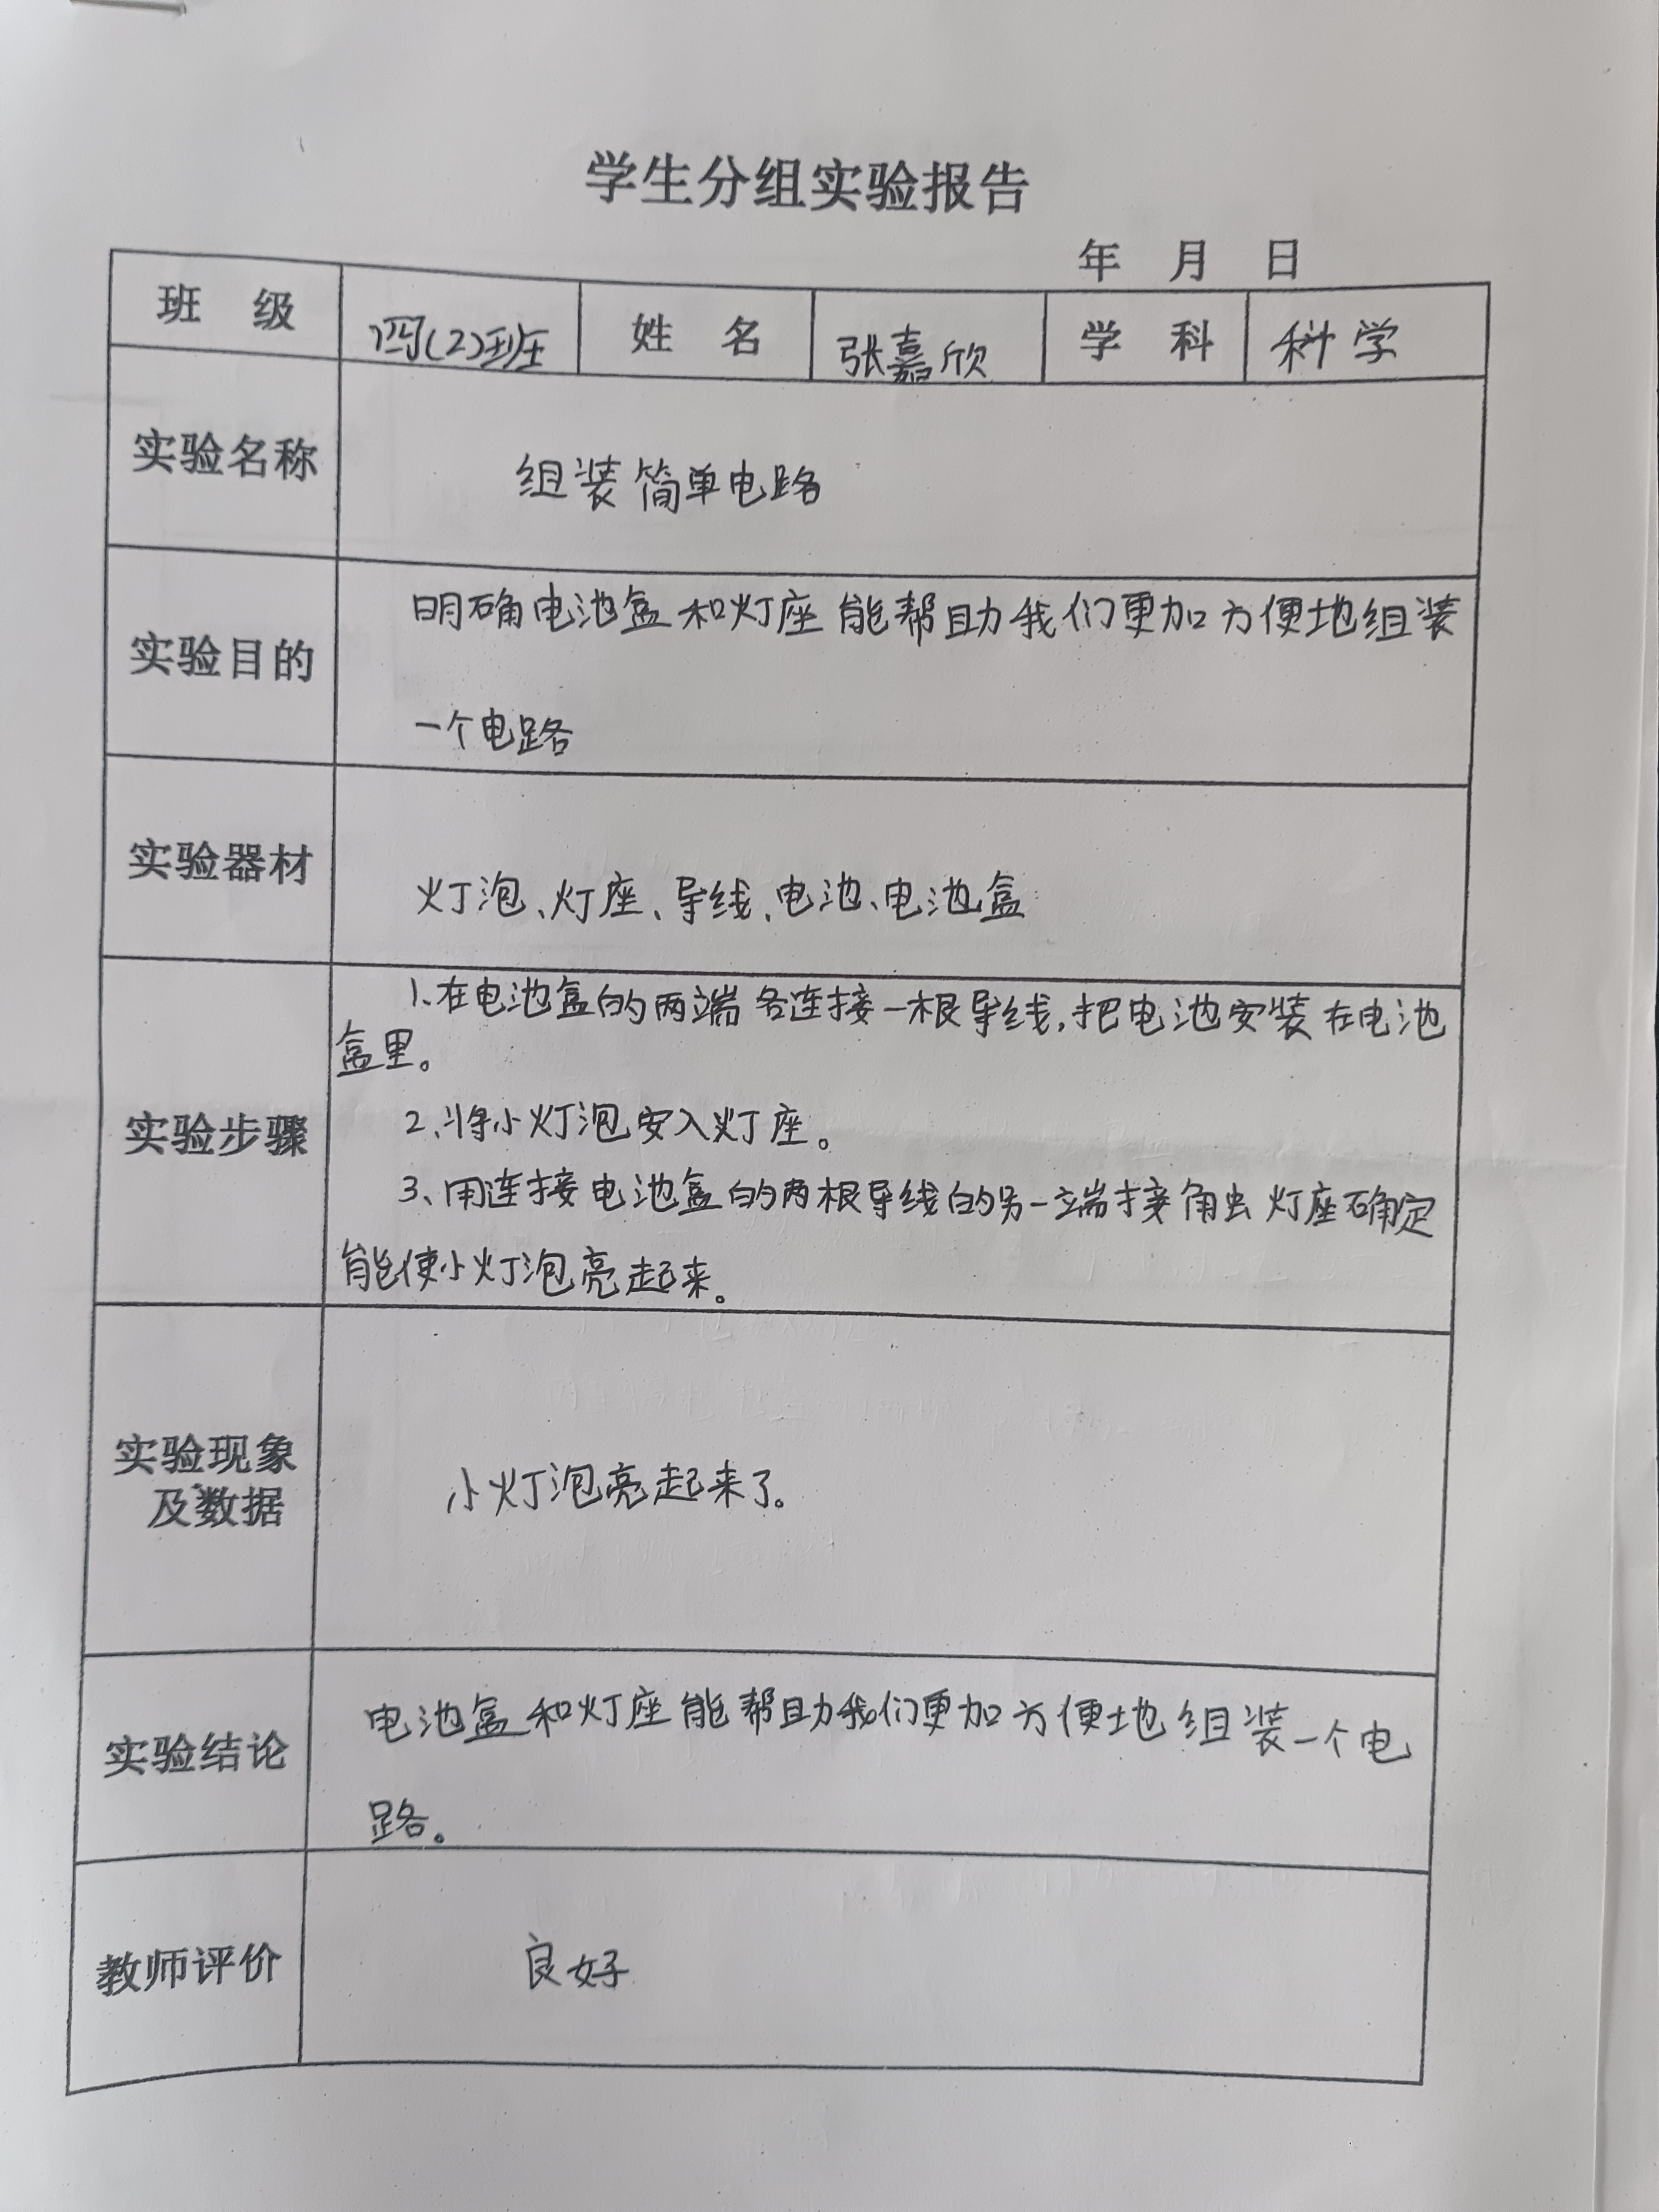 学生分组实验报告
年 月 日
班 级 四(2)班 姓 名 张嘉欣 学 科 科学
实验名称 组装简单电路
实验目的 明确电池盒和灯座能帮助我们更加方便地组装
一个电路
实验器材 灯泡、灯座、导线、电池、电池盒
实验步骤 1、在电池盒的两端各连接一根导线,把电池安装在电池
盒里。
2、将小灯泡安入灯座。
3、用连接电池盒的两根导线的另一端接触灯座确定
能使小灯泡亮起来。
实验现象
及数据
小灯泡亮起来了。
实验结论 电池盒和灯座能帮助我们更加方便地组装一个电
路。
教师评价 良好